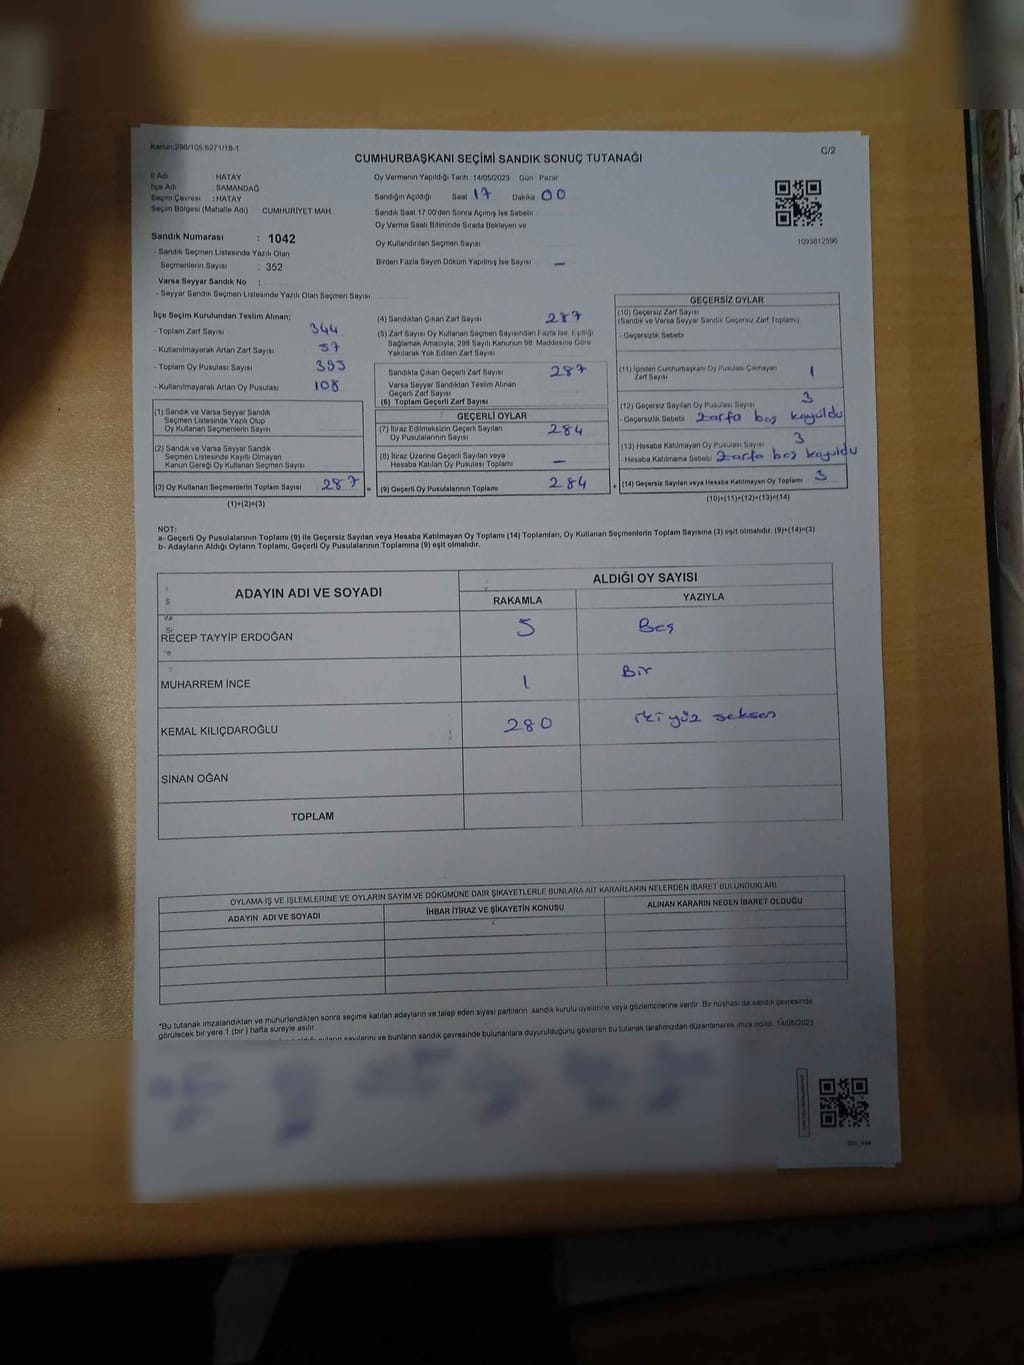 Kanun:298/105,6271/16-1
C/2
CUMHURBAŞKANI SEÇİMİ SANDIK SONUÇ TUTANAĞI
İl Adı : HATAY
İlçe Adı : SAMANDAĞ
Seçim Çevresi : HATAY
Seçim Bölgesi (Mahalle Adı) CUMHURİYET MAH.
Oy Vermenin Yapıldığı Tarih 14/05/2023 Gün : Pazar
Sandığın Açıldığı Saat 17 Dakika 00
Sandık Saat 17 00'den Sonra Açımış İse Sebebi
Oy Verme Saati Bitiminde Sırada Bekleyen ve
Oy Kullandırılan Seçmen Sayısı
Birden Fazla Sayım Döküm Yapılmış İse Sayısı —
1093812596
Sandık Numarası : 1042
- Sandık Seçmen Listesinde Yazılı Olan
Seçmenlerin Sayısı : 352
Varsa Seyyar Sandık No :
- Seyyar Sandık Seçmen Listesinde Yazılı Olan Seçmen Sayısı
İlçe Seçim Kurulundan Teslim Alınan;
- Toplam Zarf Sayısı 344
- Kullanılmayarak Artan Zarf Sayısı 57
- Toplam Oy Pusulası Sayısı
- Kullanılmayarak Artan Oy Pusulası 108
(1) Sandık ve Varsa Seyyar Sandık
Seçmen Listesinde Yazılı Olup
Oy Kullanan Seçmenlerin Sayısı
(2) Sandık ve Varsa Seyyar Sandık
Seçmen Listesinde Kayıtlı Olmayan
Kanun Gereği Oy Kullanan Seçmen Sayısı
(3) Oy Kullanan Seçmenlerin Toplam Sayısı 287
(1)+(2)=(3)
(4) Sandıktan Çıkan Zarf Sayısı 287
(5) Zarf Sayısı Oy Kullanan Seçmen Sayısından Fazla İse, Eşitliği
Sağlamak Amacıyla, 298 Sayılı Kanunun 98. Maddesine Göre
Yakılarak Yok Edilen Zarf Sayısı
Sandıkta Çıkan Geçerli Zarf Sayısı 287
Varsa Seyyar Sandıktan Teslim Alınan
Geçerli Zarf Sayısı
(6) Toplam Geçerli Zarf Sayısı
GEÇERLİ OYLAR
(7) İtiraz Edilmeksizin Geçerli Sayılan
Oy Pusulalarının Sayısı 284
(8) İtiraz Üzerine Geçerli Sayılan veya
Hesaba Katılan Oy Pusulası Toplamı —
(9) Geçerli Oy Pusulalarının Toplamı 284
GEÇERSİZ OYLAR
(10) Geçersiz Zarf Sayısı
(Sandık ve Varsa Seyyar Sandık Geçersiz Zarf Toplamı)
- Geçersizlik Sebebi
(11) İçinden Cumhurbaşkanı Oy Pusulası Çıkmayan
Zarf Sayısı 1
(12) Geçersiz Sayılan Oy Pusulası Sayısı 3
- Geçersizlik Sebebi Zarfa boş koyuldu
(13) Hesaba Katılmayan Oy Pusulası Sayısı 3
Hesaba Katılmama Sebebi Zarfa boş koyuldu
(14) Geçersiz Sayılan veya Hesaba Katılmayan Oy Toplamı 3
(10)+(11)+(12)+(13)=(14)
NOT:
a- Geçerli Oy Pusulalarının Toplamı (9) ile Geçersiz Sayılan veya Hesaba Katılmayan Oy Toplamı (14) Toplamları, Oy Kullanan Seçmenlerin Toplam Sayısına (3) eşit olmalıdır. (9)+(14)=(3)
b- Adayların Aldığı Oyların Toplamı, Geçerli Oy Pusulalarının Toplamına (9) eşit olmalıdır.
ADAYIN ADI VE SOYADI
ALDIĞI OY SAYISI
RAKAMLA YAZIYLA
RECEP TAYYİP ERDOĞAN 5 Beş
MUHARREM İNCE 1 Bir
KEMAL KILIÇDAROĞLU 280 iki yüz seksen
SİNAN OĞAN
TOPLAM
OYLAMA İŞ VE İŞLEMLERİNE VE OYLARIN SAYIM VE DÖKÜMÜNE DAİR ŞİKAYETLERLE BUNLARA AİT KARARLARIN NELERDEN İBARET BULUNDUKLARI
ADAYIN ADI VE SOYADI İHBAR İTİRAZ VE ŞİKAYETİN KONUSU ALINAN KARARIN NEDEN İBARET OLDUĞU
*Bu tutanak imzalandıktan ve mühürlendikten sonra seçime katılan adayların ve talep eden siyasi partilerin sandık kurulu üyelerine veya gözlemcilerine verilir. Bir nüshası da sandık çevresinde
görülecek bir yere 1 (bir ) hafta süreyle asılır.
sayılarını ve bunların sandık çevresinde bulunanlara duyurulduğunu gösteren bu tutanak tarafımızdan düzenlenerek imza edildi. 14/05/2023